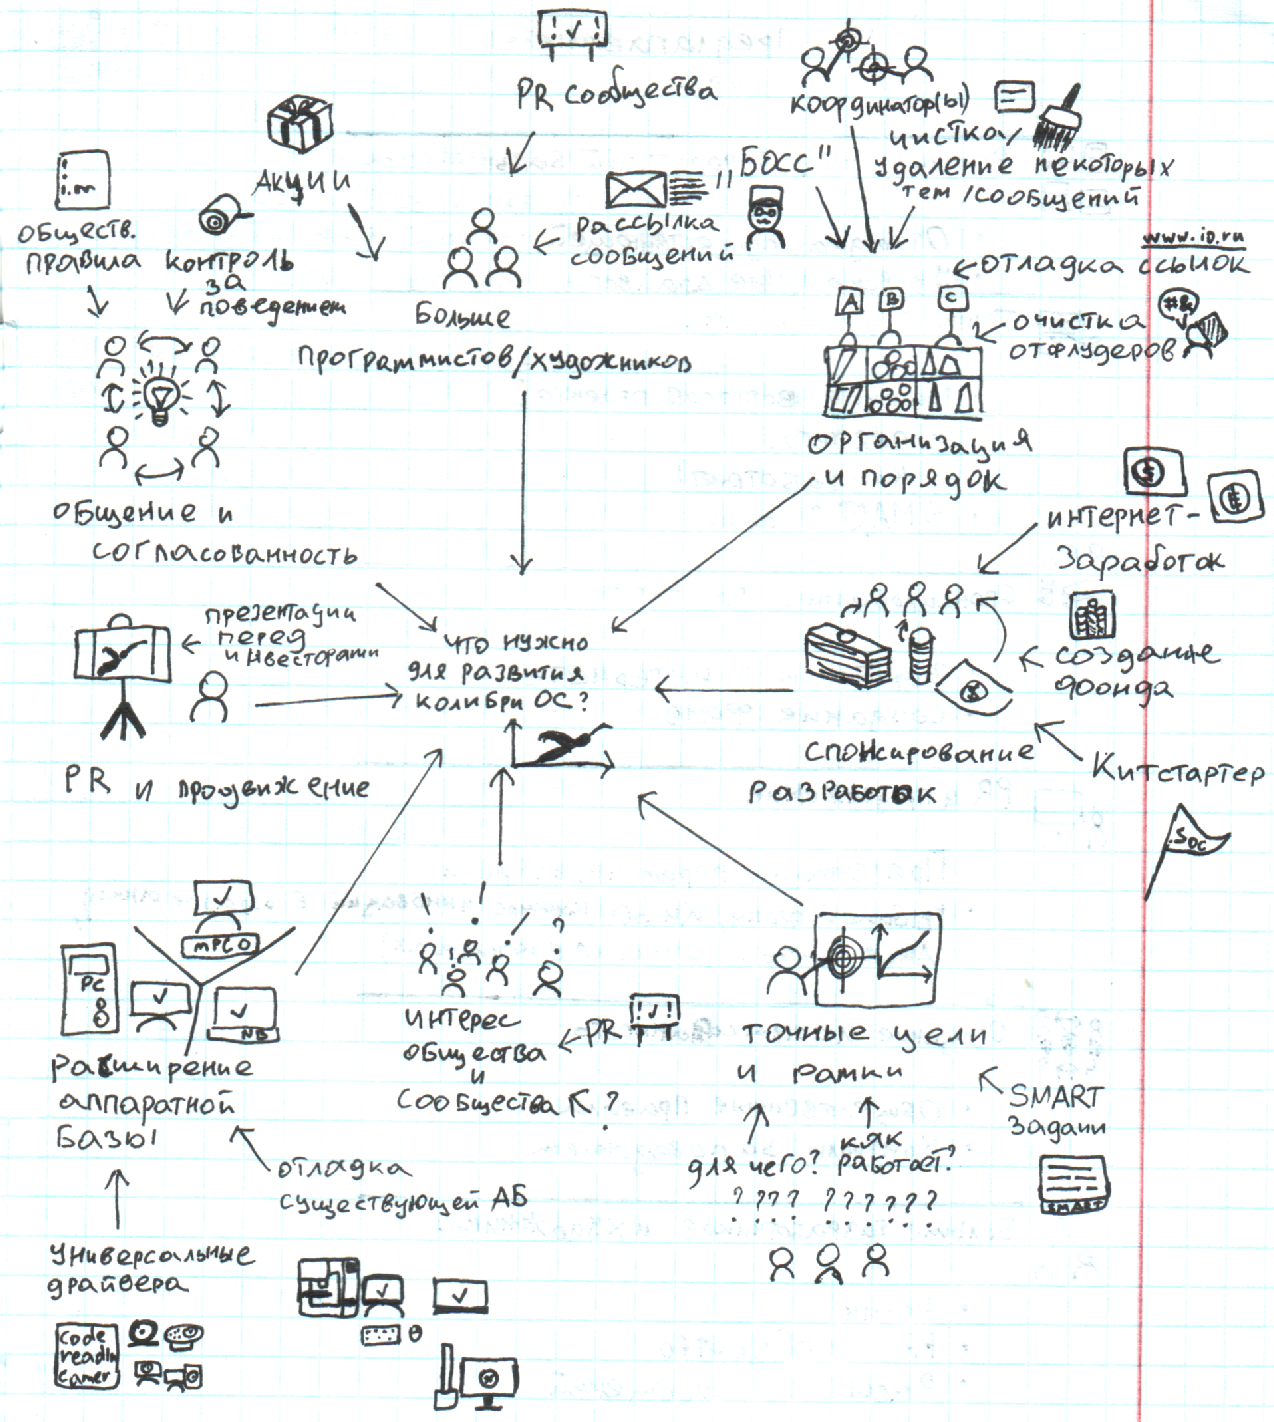 ! ✓ !
PR сообщества
координатор(ы)
чистка/
удаление некоторых
тем/сообщений
"БОСС"
Акции
рассылка
сообщений
обществ.
правила
контроль
за
поведением
www.io.ru
отладка ссылок
A B C
#&
очистка
от флудеров
Больше
программистов/художников
организация
и порядок
общение и
согласованность
$
€
интернет-
заработок
презентации
перед
инвесторами
что нужно
для развития
колибри ОС?
создание
фонда
спонсирование
разработок
Китстартер
PR и продвижение
SOC
mPCO
PC
NB
расширение
аппаратной
базы
! ! ! ?
интерес
общества
и
сообщества
PR
! ✓ !
?
точные цели
и рамки
SMART
задачи
SMART
для чего?
как
работает?
? ? ? ? ? ? ? ? ? ?
отладка
существующей АБ
универсальные
драйвера
code
readin
camer